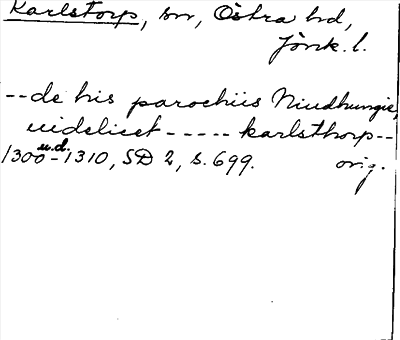 Karlstorp, sn, Östra hd,
Jönk. l.
--de his parochiis Niudhungie,
uidelicet ----- karlsthorp--
u.d.
1300-1310, SD 2, s. 699. orig.